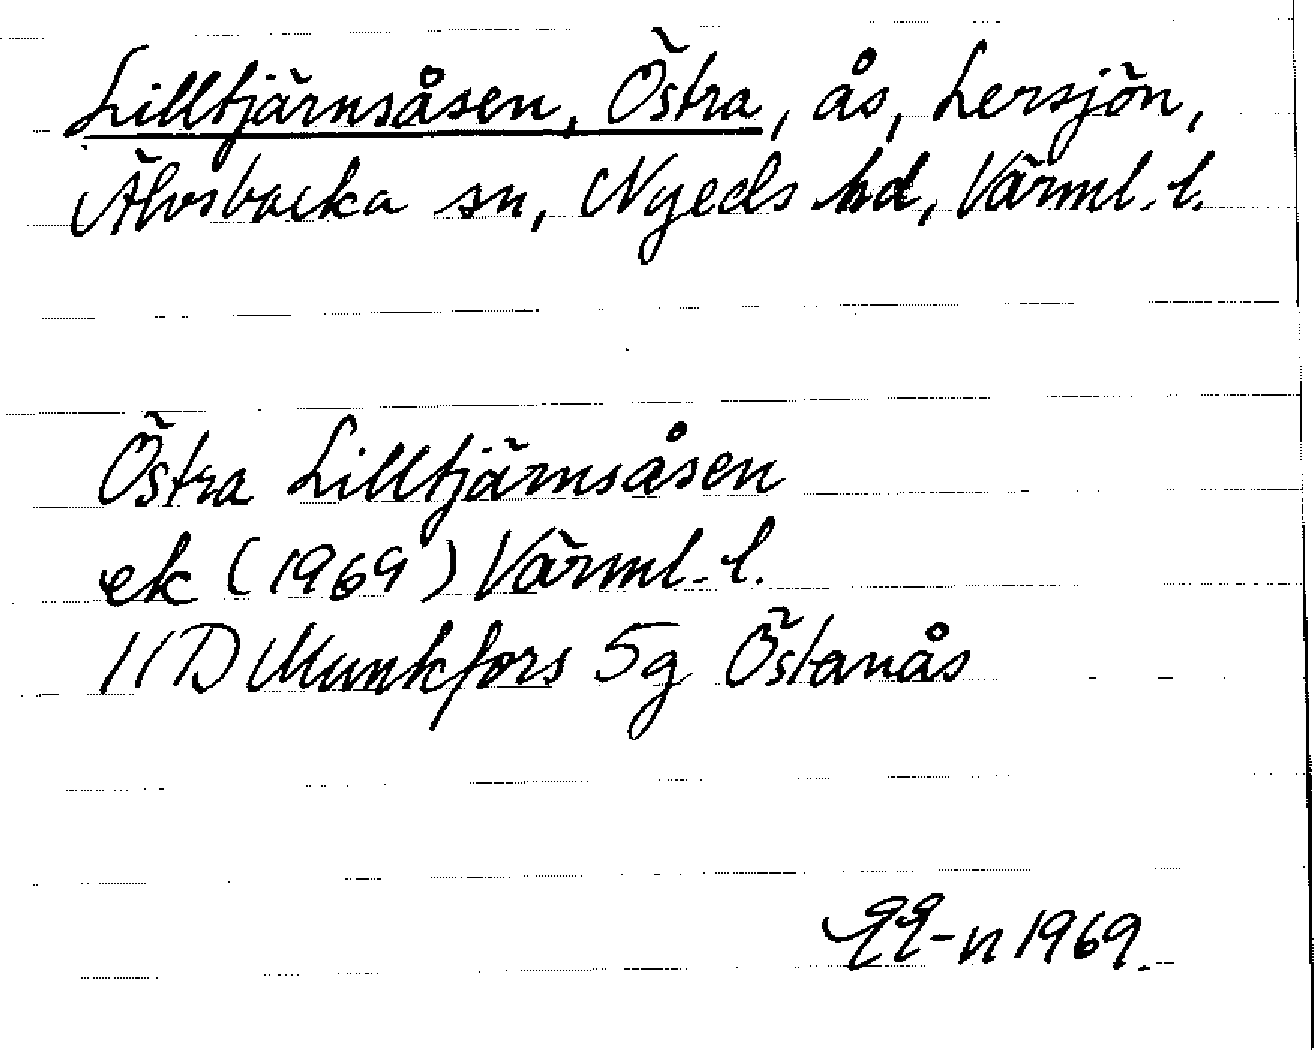 Lilltjärnsåsen, Östra, ås, Lersjön,
Älvsbacka sn, Nyeds hd, Värml. l.
Östra Lilltjärnsåsen
ek (1969) Värml. l.
11D Munkfors 5g Östanås
1969.